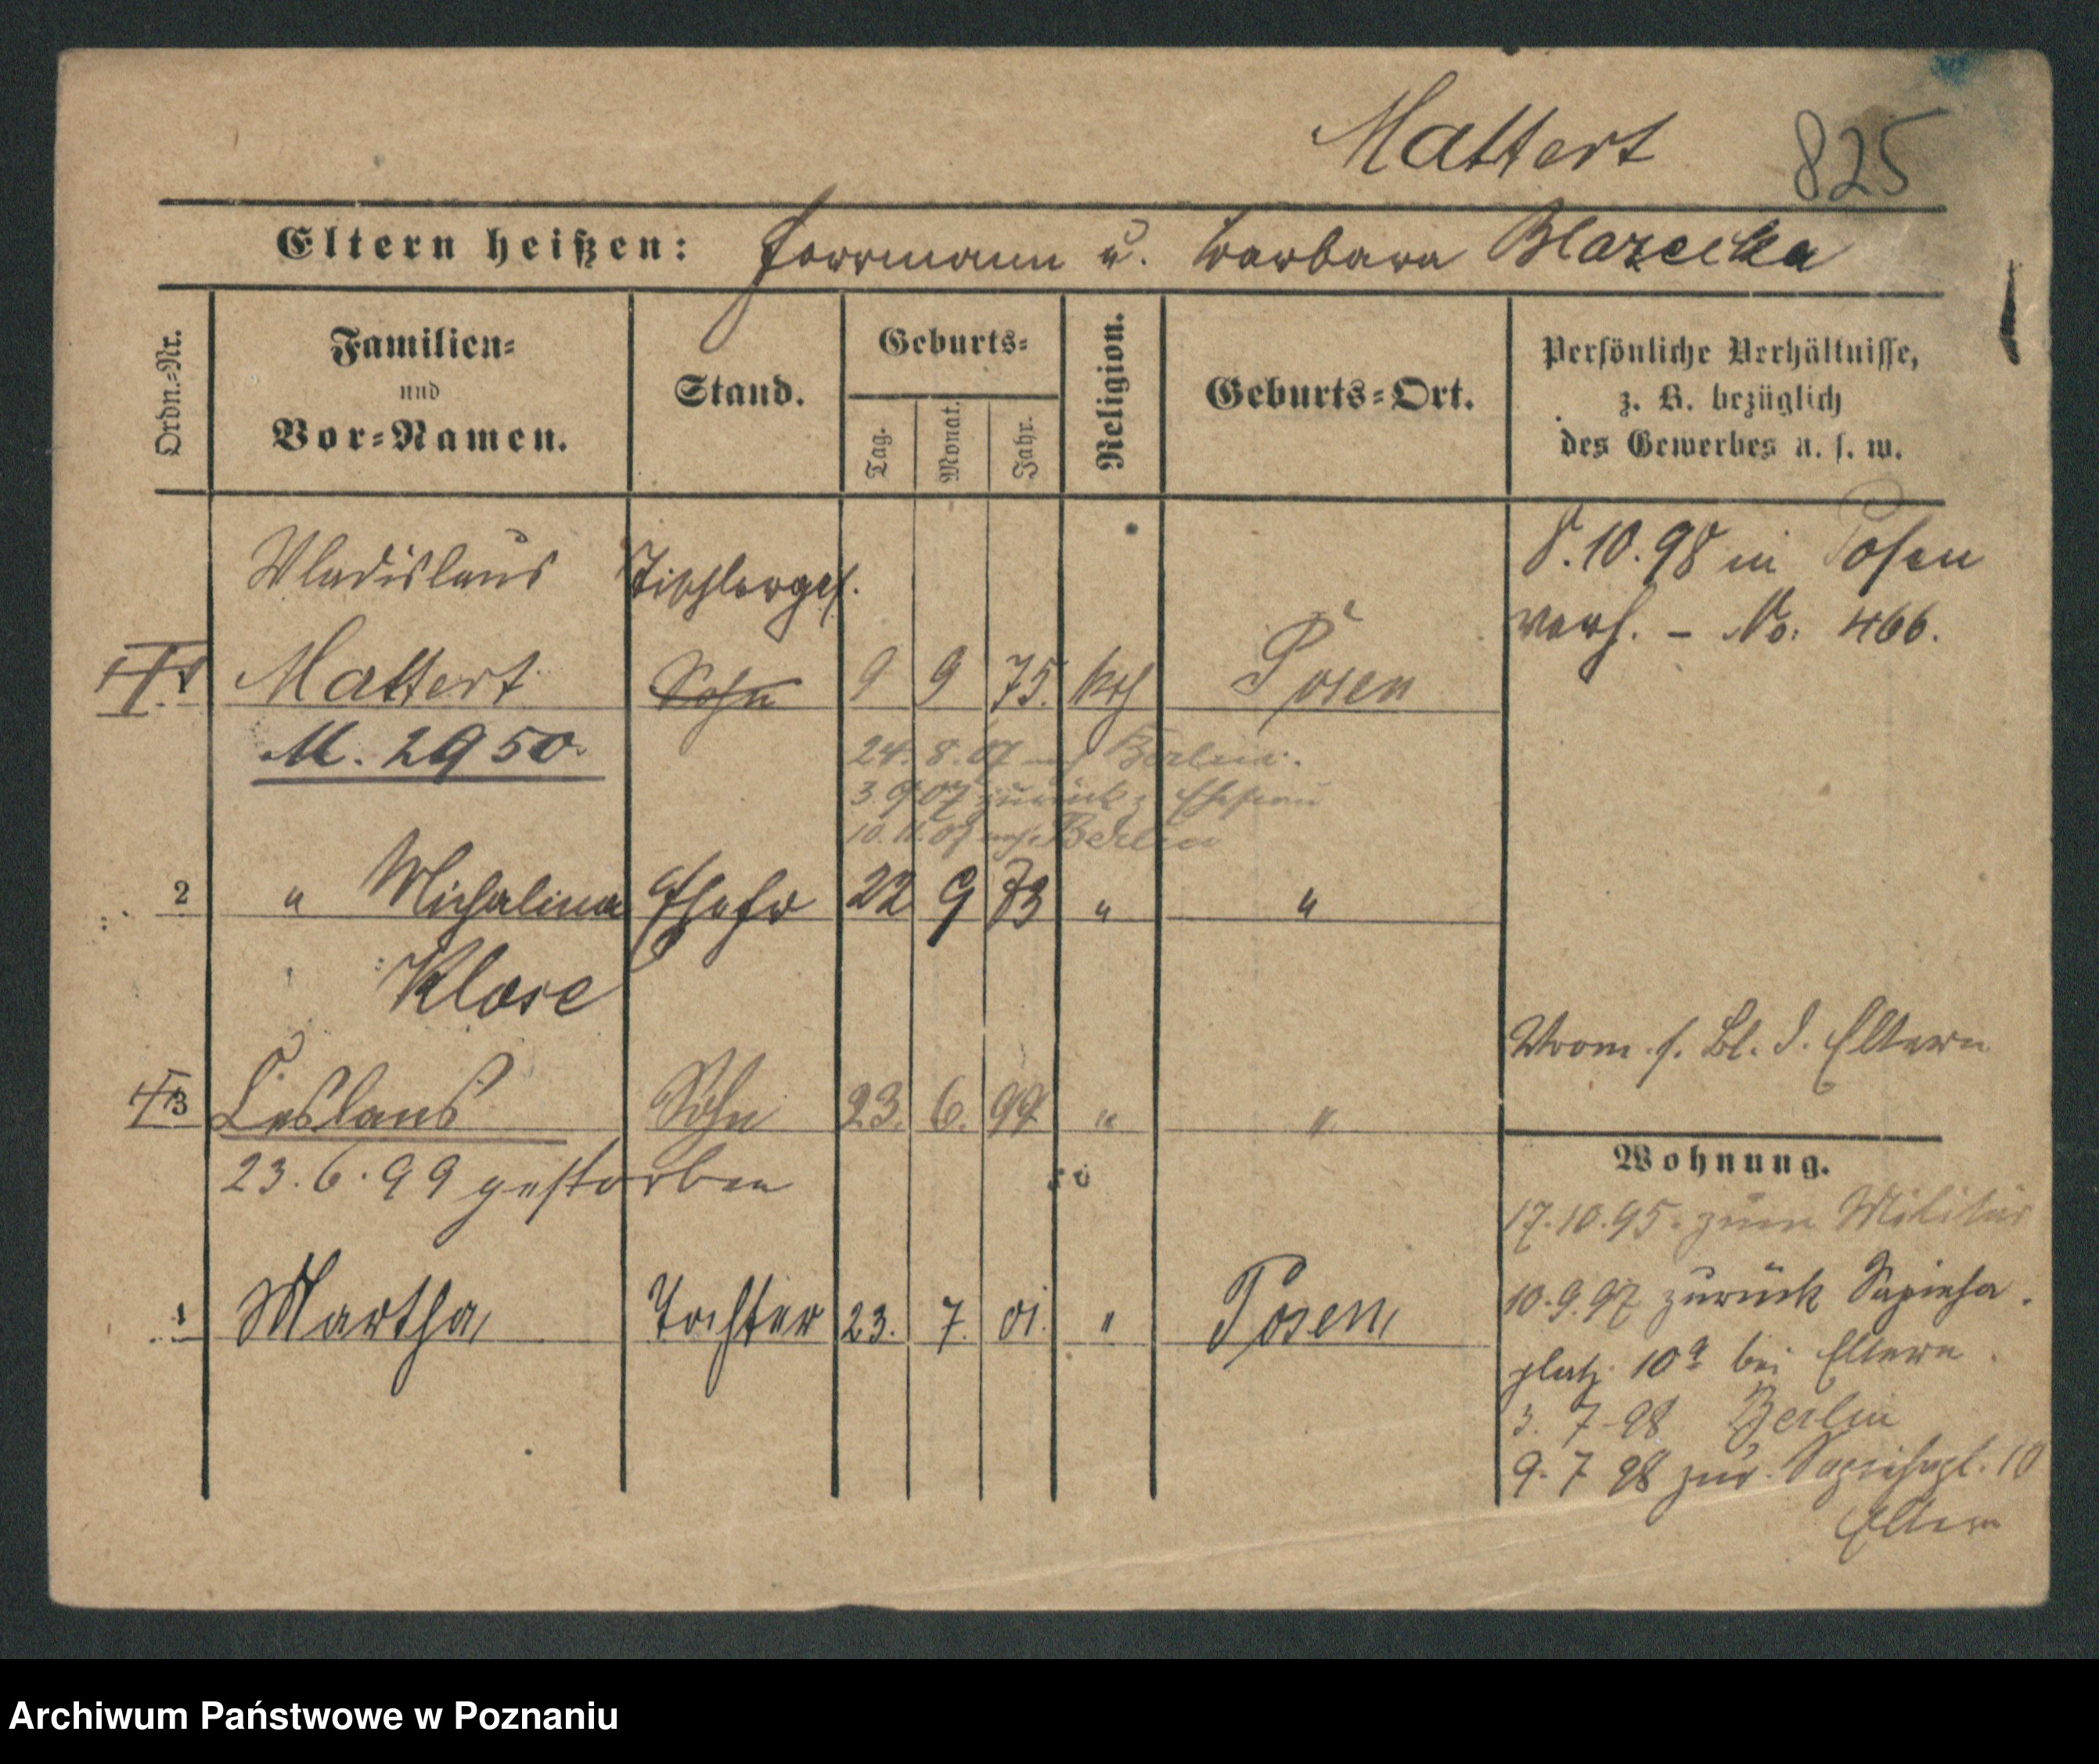 Mattert 825
Eltern heißen: Herrmann u. Barbara Blazecka
Ordn.=Nr.
Familien=
und
Vor=Namen.
Stand.
Geburts=
Tag.
Monat.
Jahr.
Religion.
Geburts=Ort.
Persönliche Verhältnisse,
z. B. bezüglich
des Gewerbes u. s. w.
Wladislaus Tischlerges.
8.10.98 in Posen
verh. – No: 466.
1 Mattert Sohn 9 9 75. kth Posen
M. 2950.
24. 8. 07 nach Berlin.
3.9.07 zurück z Ehefrau
10.11.07 nach Berlin
2 " Michalina Ehefr 22 9 73 " "
Klose
Vrom. s. Bl. d. Eltern
3 Ceslaus Sohn 23. 6. 99 " "
23.6.99 gestorben
Martha Tochter 23. 7. 01. " Posen
Wohnung.
17.10.95. zum Militär
10.9.97 zurück Sapieha
platz 10a bei Eltern
3. 7-98 Berlin
9. 7 98 zur. Sapiehapl. 10
Eltern
Archiwum Państwowe w Poznaniu